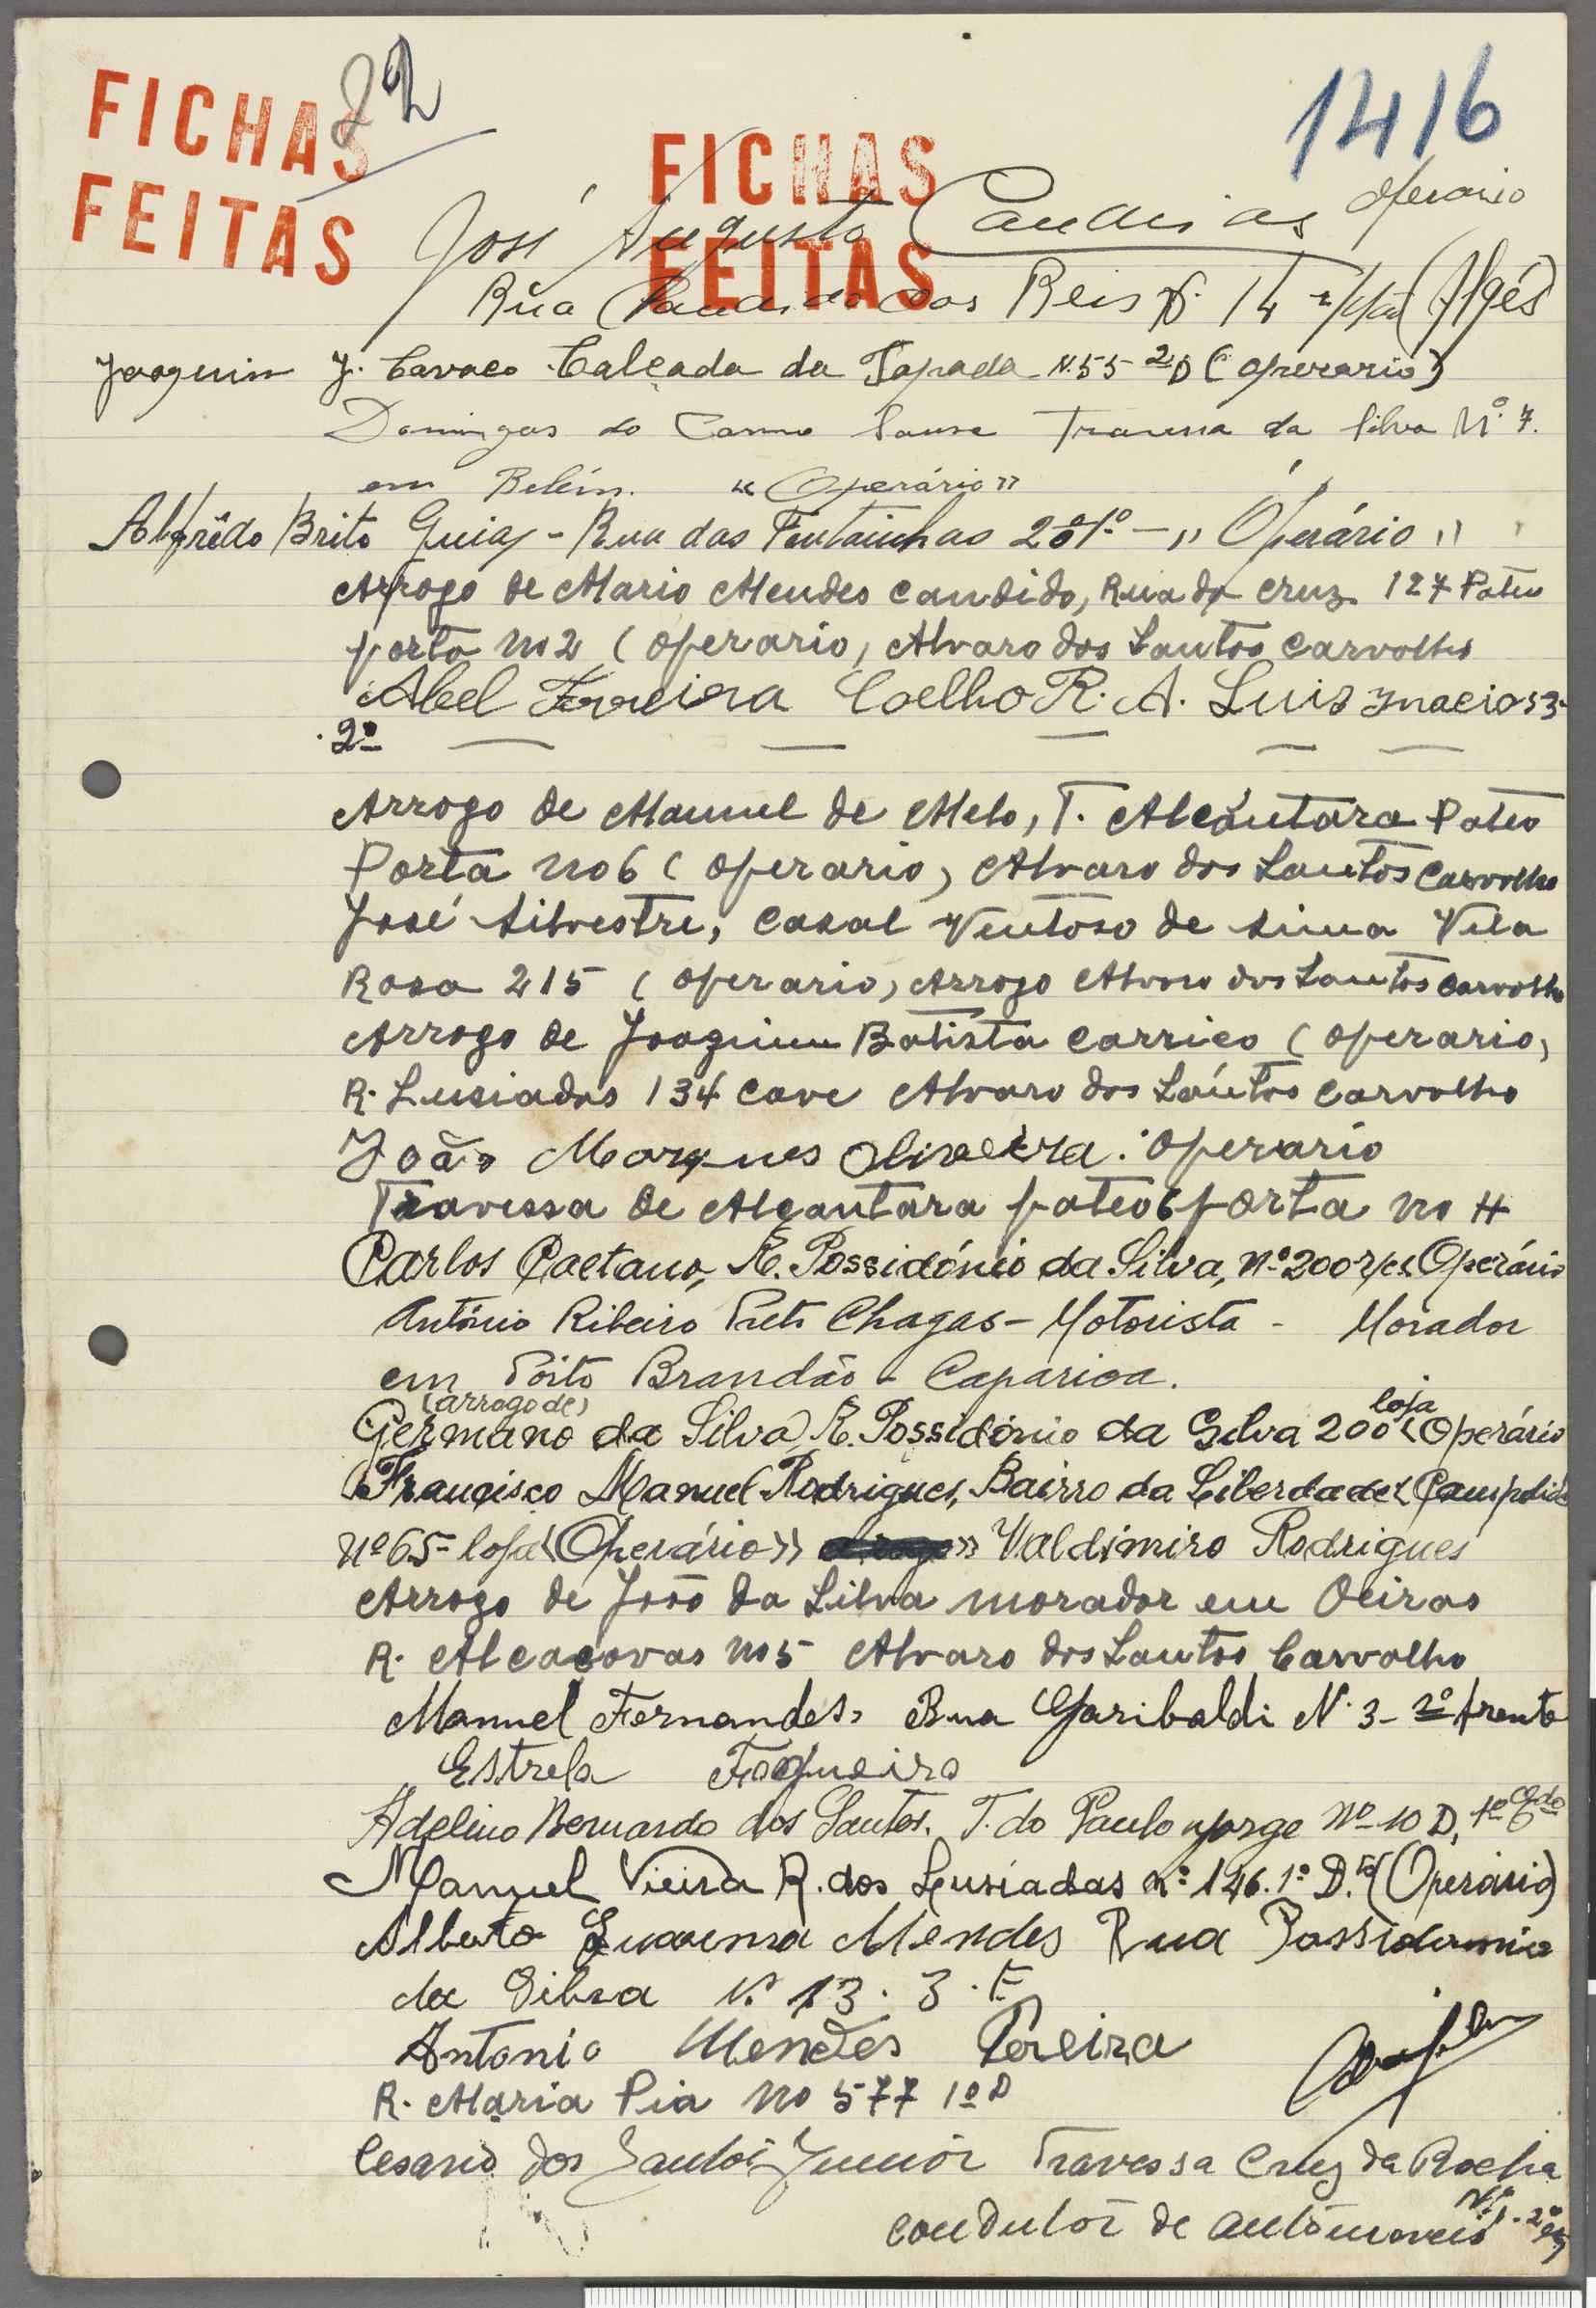 FICHAS
FEITAS
22
FICHAS
FEITAS
1416
José Augusto Candeias Operario
Rua Candido dos Reis Nº 14 r/chão (Algés)
Joaquim J. Cavaco Calçada da Tapada N.55 2º D (operario)
Domingos do Carmo Sousa Travessa da Silva Nº 7.
em Belém. «Operário»
Alfrêdo Brito Guia - Rua das Fontainhas 1º - "Operário"
Arrogo de Mario Mendes Candido, Rua da Cruz 127 Pateo
porta no 2 (operario, Alvaro dos Santos Carvalho
Abel Ferreira Coelho R. A. Luis Ynacio 53
2º
Arrogo de Manuel de Melo, T. Alcântara Pateo
Porta no 6 (operario, Alvaro dos Santos Carvalho
José Silvestre, Casal Ventoso de Sima Vila
Rosa 215 (operario, Arrogo Alvaro dos Santos Carvalho
Arrogo de Joaquim Batista Carrico (operario,
R. Lusiadas 134 Cave Alvaro dos Santos Carvalho
João Marques Oliveira. Operario
Travessa de Alcantara pateo 6 porta no 4
Carlos Caetano, R. Possidónio da Silva, nº 200 r/c Operário
António Ribeiro Preto Chagas - Motorista - Morador
em Porto Brandão - Caparica.
(arrogo de)
Germano da Silva, R. Possidónio da Silva 200 loja «Operário
Francisco Manuel Rodrigues, Bairro da Liberdade Campolide
nº 65- loja «Operário» Valdimiro Rodrigues
Arrogo de João da Silva morador em Oeiras
R. Alcaçovas no 5 Alvaro dos Santos Carvalho
Manuel Fernandes, Rua Garibaldi N. 3- 2º frente
Estrela Fogueiro
Adelino Bernardo dos Santos. T. do Paulo Jorge Nº 10 D, 1º Esdo
Manuel Vieira R. dos Lusíadas nº 146. 1º D.to (Operário)
Alberto Mendes Rua Possidonio
da Silva Nº 13. 3. E
Antonio Mendes Pereira
R. Maria Pia no 577 1º D
Cesario dos Santos Junior Travessa Cruz da Rocha
Nº 1. 2º
condutor de automoveis